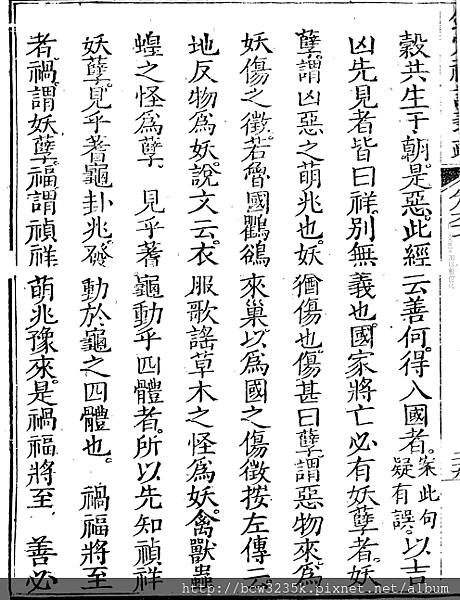 穀共生于朝。是惡。此經云善何。得入國者。案此句疑有誤。以吉
凶先見者皆曰祥。別無義也。國家將亡必有妖孽者。妖
孽謂凶惡之萌兆也。妖猶傷也。傷甚曰孽。謂惡物來爲
妖傷之徵。若魯國鸜鵒來巢。以爲國之傷徵。按左傳云。
地反物爲妖。說文云。衣服歌謠草木之怪爲妖。禽獸蟲
蝗之怪爲孽。見乎蓍龜動乎四體者。所以先知禎祥
妖孽。見乎蓍龜卦兆。發動於龜之四體也。禍福將至
者。禍謂妖孽。福謂禎祥。萌兆豫來。是禍福將至。善必
http://bcw3235k.pixnet.net/album